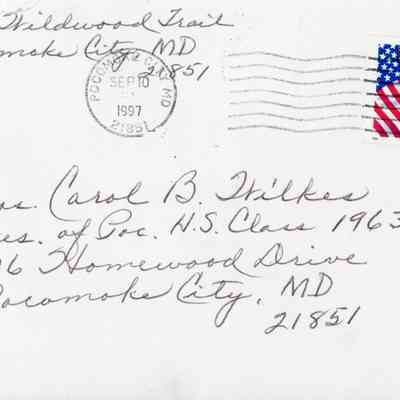 Wildwood Trail
omoke City, MD
21851
POCOMOKE CITY, MD
SEP 10
1997
21851
s. Carol B. Wilkes
es. of Poc. H.S. Class 1963
6 Homewood Drive
Pocomoke City, MD
21851